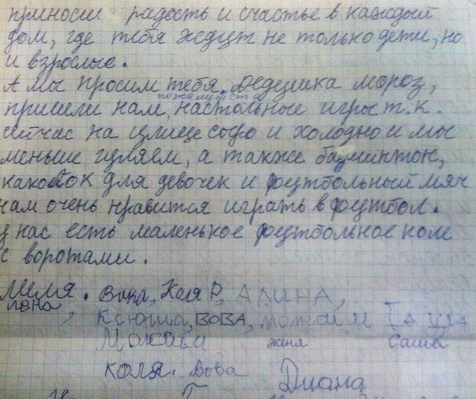 приносиш радость и счастье в каждый
дом, где тебя ждут не только дети, но
и взрослые.
А мы просим тебя, дедушка мороз,
пожалуйста
пришли нам, настольные игры т.к.
сейчас на улице и холодно и мы
меньше гуляем, а также бадминтон,
для девочек и футбольный мяч
нам очень нравится играть в футбол.
у нас есть маленькое футбольное поле
с воротами.
Вика, Коля Р, АЛИНА,
лена,
Ксюша, ВОВА,
Максим женя Саша
КОЛЯ. Вова Диана